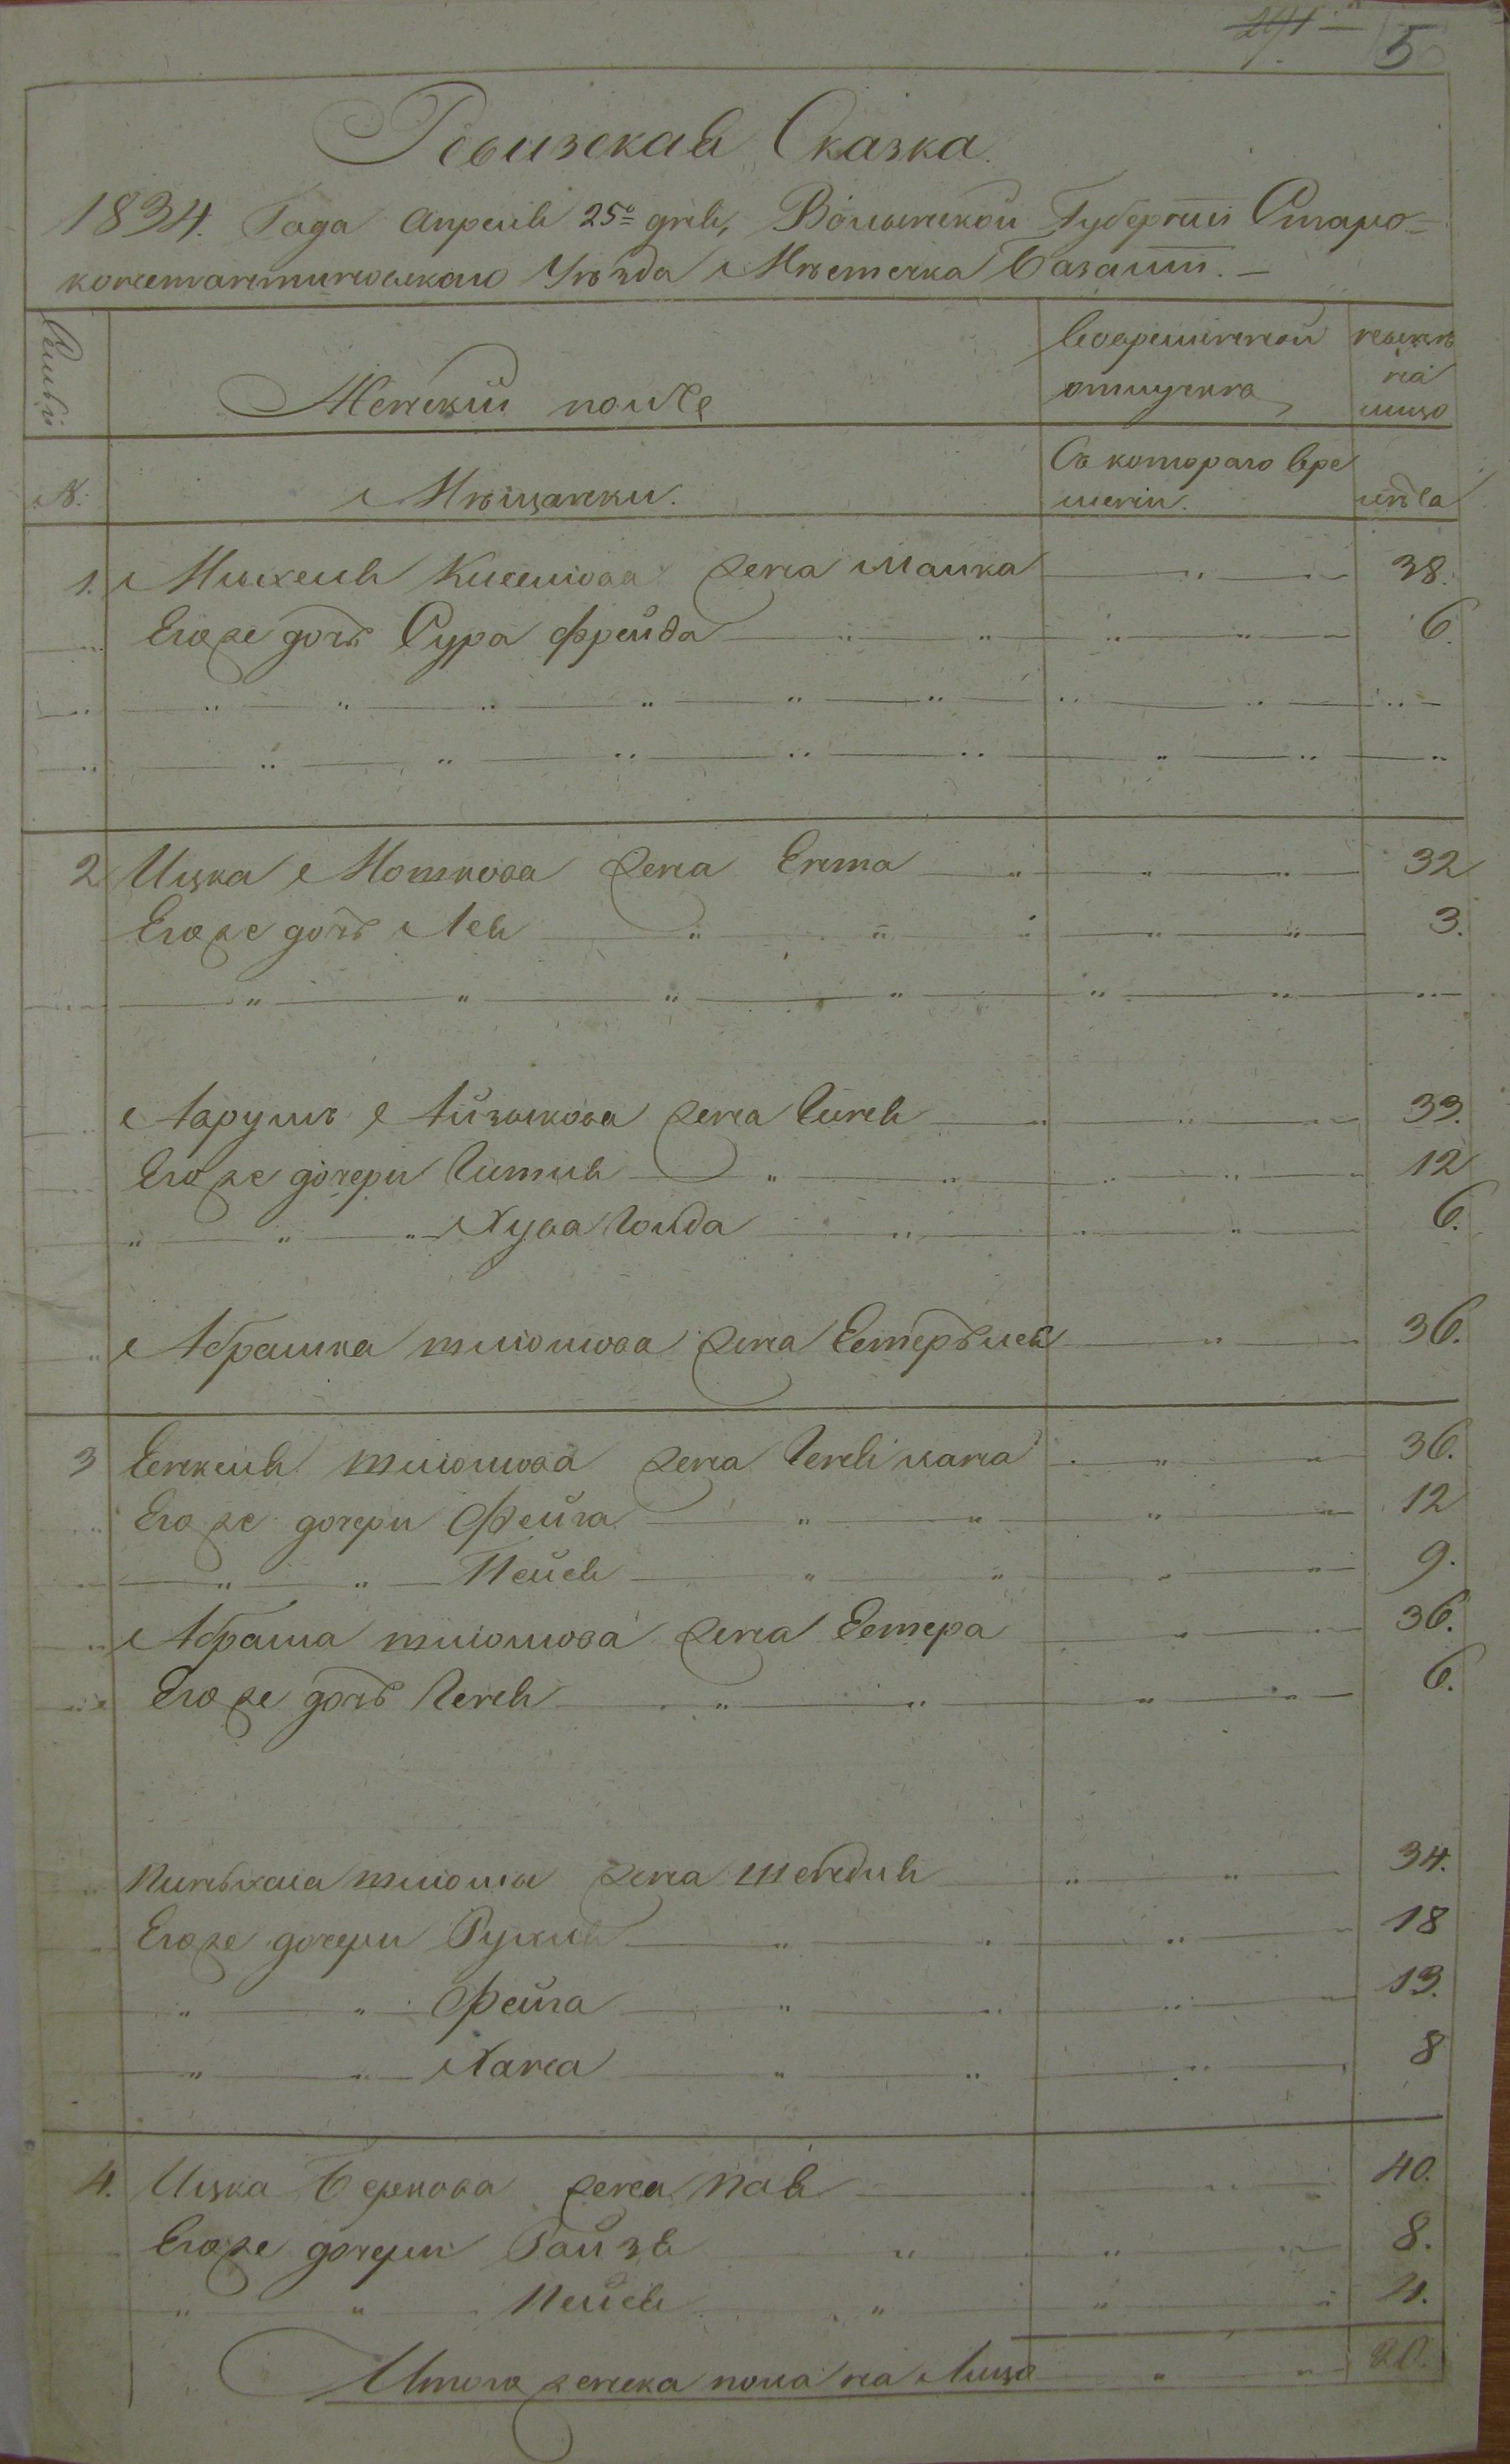 5
Ревизская Сказка.
1834. Года Апреля 25º дня, Волынской Губернии Старо-
константиновскаго Уезда Местечка Базалии. —
Семьи
Женский полъ
Во временной отлучкѣ
нынѣ на лицо
№:
Мѣщанки.
Съ котораго вре
мени.
лѣта
1. Михеля Киселиова жена Малка 38.
Его же дочь Сура Фрейда 6.
2 Ицка Мошкова жена Ента 32
Его же дочь Лея 3.
Лейзыкова жена Гиня 33.
Его же дочери Гитля 12
" " Хува Голда 6.
Абрамка жена Естеръ лея 36.
3 жена 36.
Его же дочери Фейга 12
" " Пейся 9.
Абрама жена Естера 36.
Его же дочь Геня 6.
жена Шендля 34.
Его же дочери Рухля 18
" " Фейга 13.
" " Хана 8
4. Ицка Беркова жена 40.
Его же дочери Райзя 8.
" " Пейся 4.
Итого женска пола на Лицо 20.